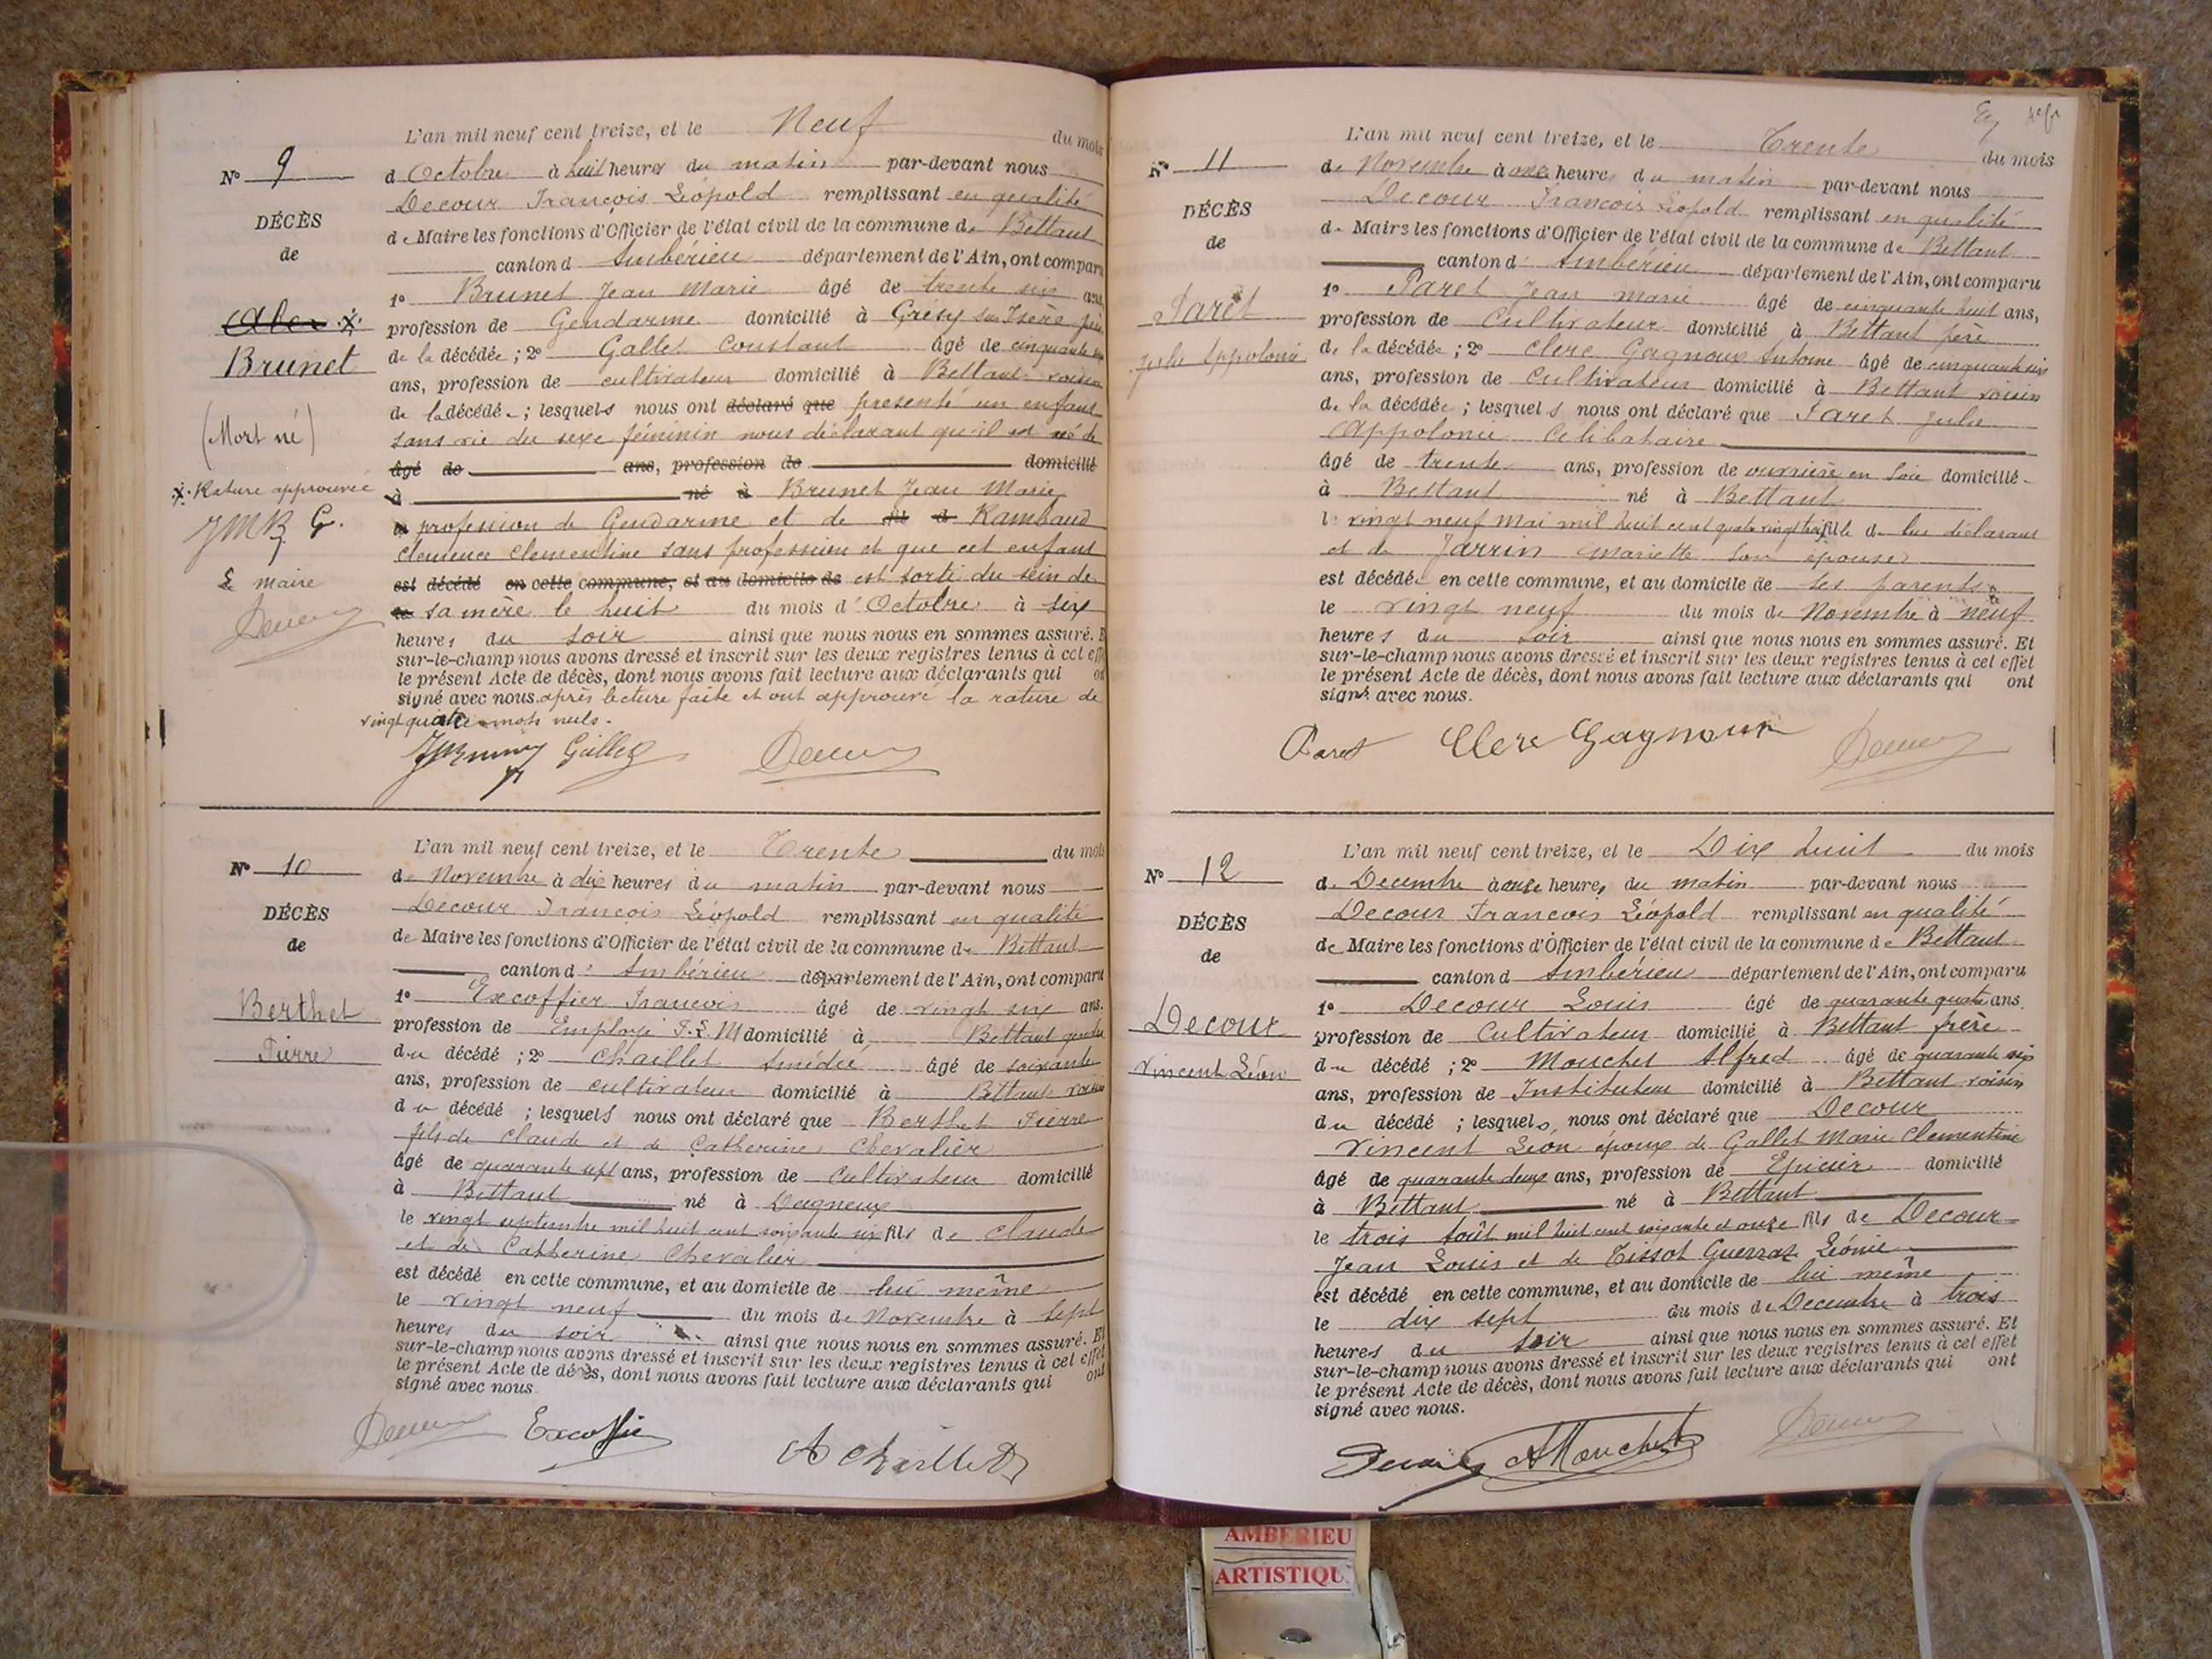 L'an mil neuf cent treize, et le Neuf du mois
N° 9
d Octobre à huit heures du matin par-devant nous
Decour François Léopold remplissant en qualité
DÉCÈS
de Maire les fonctions d'Officier de l'état civil de la commune de Bettant
de
canton d' Ambérieu département de l'Ain, ont comparu
1° Brunet Jean Marie âgé de trente six ans
Brunet
profession de Gendarme domicilié à Grésy sur Isère père
de la décédée ; 2° Gallet Constant âgé de cinquante
ans, profession de cultivateur domicilié à Bettant voisin
(Mort né)
de la décédé ; lesquels nous ont déclaré que présenté un enfant
sans vie du sexe féminin nous déclarant qu'il est né de
âgé de ans, profession de domicilié
x. Rature approuvée
à né à Brunet Jean Marie
JMB G.
profession de Gendarme et de Rambaud
Clemence Clementine sans profession et que cet enfant
Le maire
est décédé en cette commune, et au domicile de est sorti du sein de
sa mère le huit du mois d'Octobre à six
heures du soir ainsi que nous nous en sommes assuré. E
sur-le-champ nous avons dressé et inscrit sur les deux registres tenus à cet effe
le présent Acte de décès, dont nous avons fait lecture aux déclarants qui on
signé avec nous. après lecture faite et ont approuvé la rature de
vingt quatre mots nuls.
Decour
L'an mil neuf cent treize, et le Trente du mois
N° 10
de Novembre à dix heures du matin par-devant nous
DÉCÈS
Decour François Léopold remplissant en qualité
de
de Maire les fonctions d'Officier de l'état civil de la commune de Bettant
canton d' Ambérieu département de l'Ain, ont comparu
Berthet
1° Excoffier François âgé de vingt six ans.
Pierre
profession de Employé P.L.M domicilié à Bettant gendre
du décédé ; 2° Chaillet Amédée âgé de soixante
ans, profession de cultivateur domicilié à Bettant voisin
du décédé ; lesquels nous ont déclaré que Berthet Pierre
fils de Claude et de Catherine Chevalier
âgé de quarante sept ans, profession de Cultivateur domicilié
à Bettant né à Dagneux
le vingt septembre mil huit cent soixante six fils de Claude
et de Catherine Chevalier
est décédé en cette commune, et au domicile de lui même
le vingt neuf du mois de Novembre à sept
heures du soir ainsi que nous nous en sommes assuré. Et
sur-le-champ nous avons dressé et inscrit sur les deux registres tenus à cet effet
le présent Acte de décès, dont nous avons fait lecture aux déclarants qui ont
signé avec nous
Decour Excoffier A Chaillet
L'an mil neuf cent treize, et le Trente du mois
N° 11
de Novembre à onze heures du matin par-devant nous
DÉCÈS
Decour François Léopold remplissant en qualité
de
de Maire les fonctions d'Officier de l'état civil de la commune de Bettant
canton d' Ambérieu département de l'Ain, ont comparu
Paret
1° Paret Jean Marie âgé de cinquante huit ans,
Julie Appolonie
profession de Cultivateur domicilié à Bettant père
de la décédée ; 2° Clerc Gagnoux Antoine âgé de cinquante six
ans, profession de Cultivateur domicilié à Bettant voisin
de la décédée ; lesquels nous ont déclaré que Paret Julie
Appolonie Célibataire
âgé de trente ans, profession de ouvrière en soie domicilié
à Bettant né à Bettant
le vingt neuf Mai mil huit cent quatre vingt trois fille de lui déclarant
et de Jarrin Mariette son épouse
est décédée en cette commune, et au domicile de ses parents
le vingt neuf du mois de Novembre à neuf
heures du soir ainsi que nous nous en sommes assuré. Et
sur-le-champ nous avons dressé et inscrit sur les deux registres tenus à cet effet
le présent Acte de décès, dont nous avons fait lecture aux déclarants qui ont
signé avec nous.
Paret Clerc Gagnoux Decour
L'an mil neuf cent treize, et le Dix huit du mois
N° 12
de Decembre à onze heures du matin par-devant nous
DÉCÈS
Decour François Léopold remplissant en qualité
de
de Maire les fonctions d'Officier de l'état civil de la commune de Bettant
canton d Ambérieu département de l'Ain, ont comparu
Decour
1° Decour Louis âgé de quarante quatre ans.
Vincent Léon
profession de Cultivateur domicilié à Bettant frère
du décédé ; 2° Mouchet Alfred âgé de quarante six
ans, profession de Instituteur domicilié à Bettant voisin
du décédé ; lesquels, nous ont déclaré que Decour
Vincent Leon époux de Gallet Marie Clementine
âgé de quarante deux ans, profession de Epicier domicilié
à Bettant né à Bettant
le trois Août mil huit cent soixante et onze fils de Decour
Jean Louis et de Tissot Guerraz Léonie
est décédé en cette commune, et au domicile de lui même
le dix sept du mois de Decembre à trois
heures du soir ainsi que nous nous en sommes assuré. Et
sur-le-champ nous avons dressé et inscrit sur les deux registres tenus à cet effet
le présent Acte de décès, dont nous avons fait lecture aux déclarants qui ont
signé avec nous.
A Mouchet Decour
AMBERIEU
ARTISTIQU